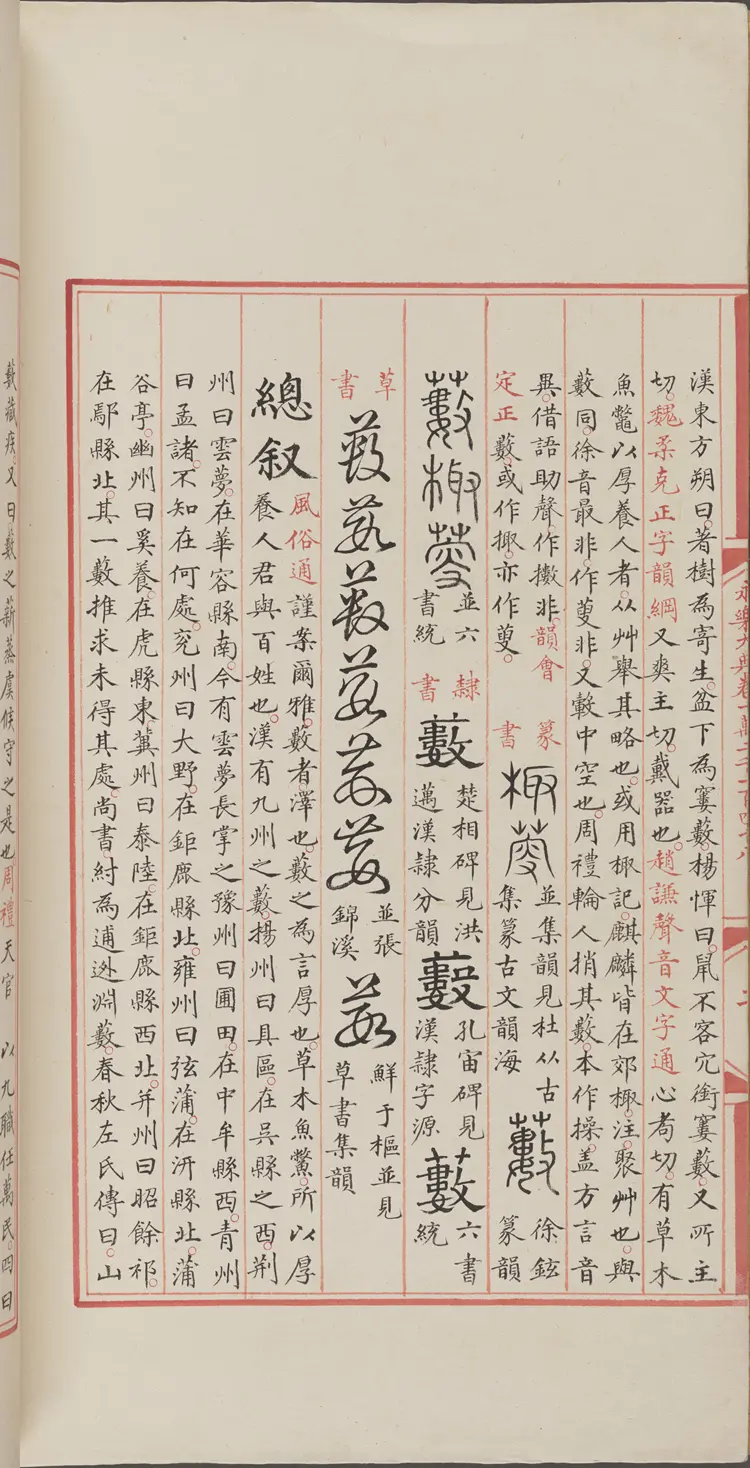 漢東方朔曰。著樹為寄生。盆下為寠藪。楊惲曰。鼠不容穴銜寠藪。又所主
切。魏柔克正字韻綱又爽主切。戴器也。趙謙聲音文字通心芻切。有草木
魚鼈以厚養人者。从艸舉其略也。或用棷記。麒麟皆在郊棷。注。聚艸也。與
藪同。徐音最非。作蔓非。又轂中空也。周禮輪人捎其藪。本作操。盖方言音
異。借語助聲。作擻非。韻會
定正藪。或作掫。亦作蔓。
篆書
棷
並集韻見杜从古
集篆古文韻海
藪
徐鉉
篆韻
藪棷
並六
書統
隸書
藪
楚相碑見洪
邁漢隸分韻
孔宙碑見
漢隸字源
藪
六書
統
草書
藪
並張
錦溪
鮮于樞並見
草書集韻
總叙
風俗通謹案爾雅。藪者。澤也。藪之為言厚也。草木魚鱉。所以厚
養人君與百姓也。漢有九州之藪。揚州曰具區。在吳縣之西。荆
州曰雲夢。在華容縣南。今有雲夢長掌之豫州曰圃田。在中牟縣西。青州
曰孟諸。不知在何處。兗州曰大野。在鉅鹿縣北。雍州曰弦蒲。在汧縣北。蒲
谷亭。幽州曰奚養。在虎縣東。冀州曰泰陸。在鉅鹿縣西北。并州曰昭餘祁。
在鄔縣北。其一藪推求未得其處。尚書。紂為逋逃淵藪。春秋左氏傳曰。山
藪藏疾。又曰藪之薪蒸虞候守之是也。周禮天官 以九職任萬民。四曰